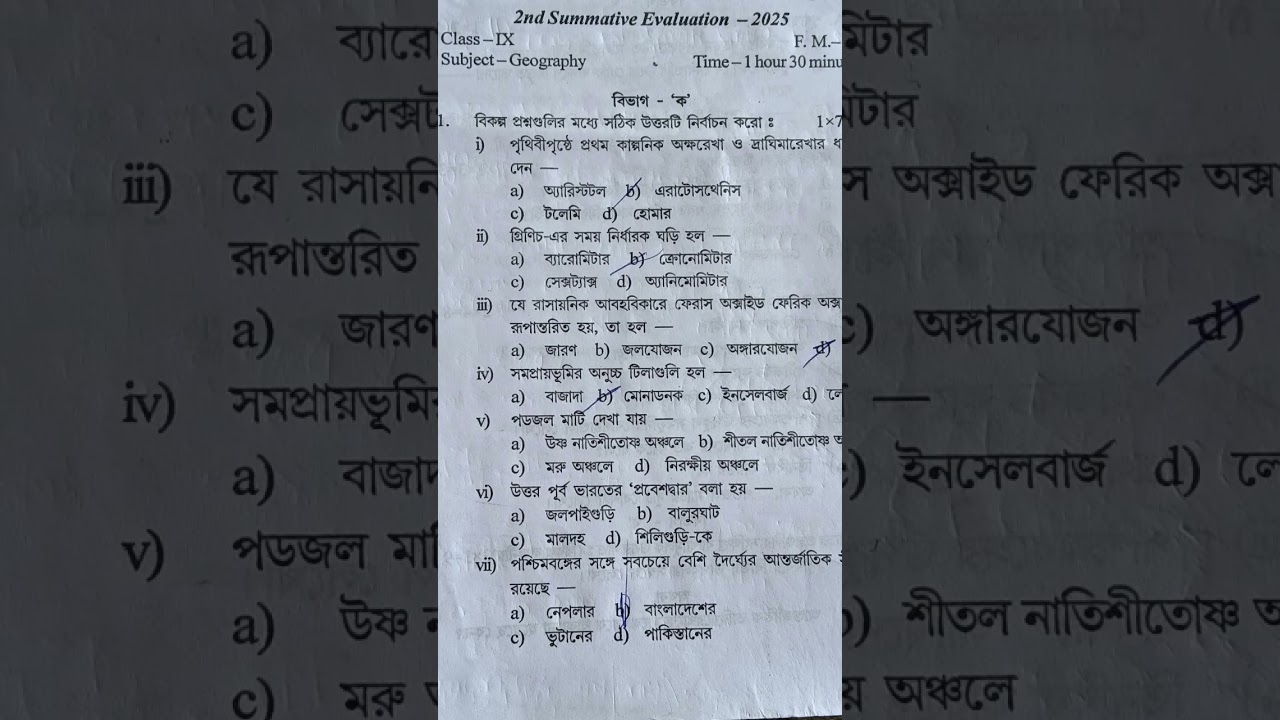 2nd Summative Evaluation – 2025
Class – IX F. M.–
Subject – Geography Time – 1 hour 30 minu
বিভাগ - ‘ক’
1. বিকল্প প্রশ্নগুলির মধ্যে সঠিক উত্তরটি নির্বাচন করো : 1×7
i) পৃথিবীপৃষ্ঠে প্রথম কাল্পনিক অক্ষরেখা ও দ্রাঘিমারেখার ধ
দেন —
a) অ্যারিস্টটল b) এরাটোসথেনিস
c) টলেমি d) হোমার
ii) গ্রিণিচ-এর সময় নির্ধারক ঘড়ি হল —
a) ব্যারোমিটার b) ক্রোনোমিটার
c) সেক্সট্যান্স d) অ্যানিমোমিটার
iii) যে রাসায়নিক আবহবিকারে ফেরাস অক্সাইড ফেরিক অক্স
রূপান্তরিত হয়, তা হল —
a) জারণ b) জলযোজন c) অঙ্গারযোজন d)
iv) সমপ্রায়ভূমির অনুচ্চ টিলাগুলি হল —
a) বাজাদা b) মোনাডনক c) ইনসেলবার্জ d) লে
v) পডজল মাটি দেখা যায় —
a) উষ্ণ নাতিশীতোষ্ণ অঞ্চলে b) শীতল নাতিশীতোষ্ণ অ
c) মরু অঞ্চলে d) নিরক্ষীয় অঞ্চলে
vi) উত্তর পূর্ব ভারতের ‘প্রবেশদ্বার’ বলা হয় —
a) জলপাইগুড়ি b) বালুরঘাট
c) মালদহ d) শিলিগুড়ি-কে
vii) পশ্চিমবঙ্গের সঙ্গে সবচেয়ে বেশি দৈর্ঘ্যের আন্তর্জাতিক
রয়েছে —
a) নেপলার b) বাংলাদেশের
c) ভুটানের d) পাকিস্তানের